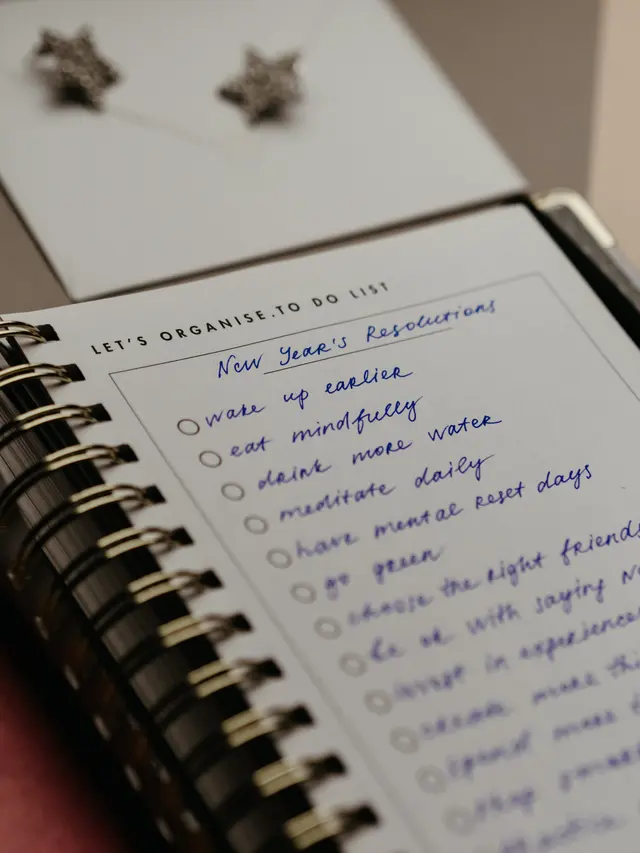 LET'S ORGANISE.TO DO LIST
New Year's Resolutions
wake up earlier
eat mindfully
drink more water
meditate daily
have mental reset days
go green
choose the right friends
be ok with saying
invest in experience
create more
spend more
stop